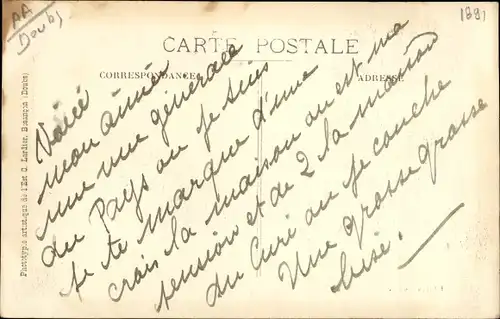 AA
Doubs
1891
CARTE POSTALE
CORRESPONDANCE
ADRESSE
Phototypie artistique de l'Est C. Lardier, Besançon (Doubs)
Voici
mon aimée
une vue générale
du Pays où je suis
je te marque d'une
crois la maison ou est ma
pension et de 2 la maison
du Curé ou je couche
Une grosse grosse
bise.